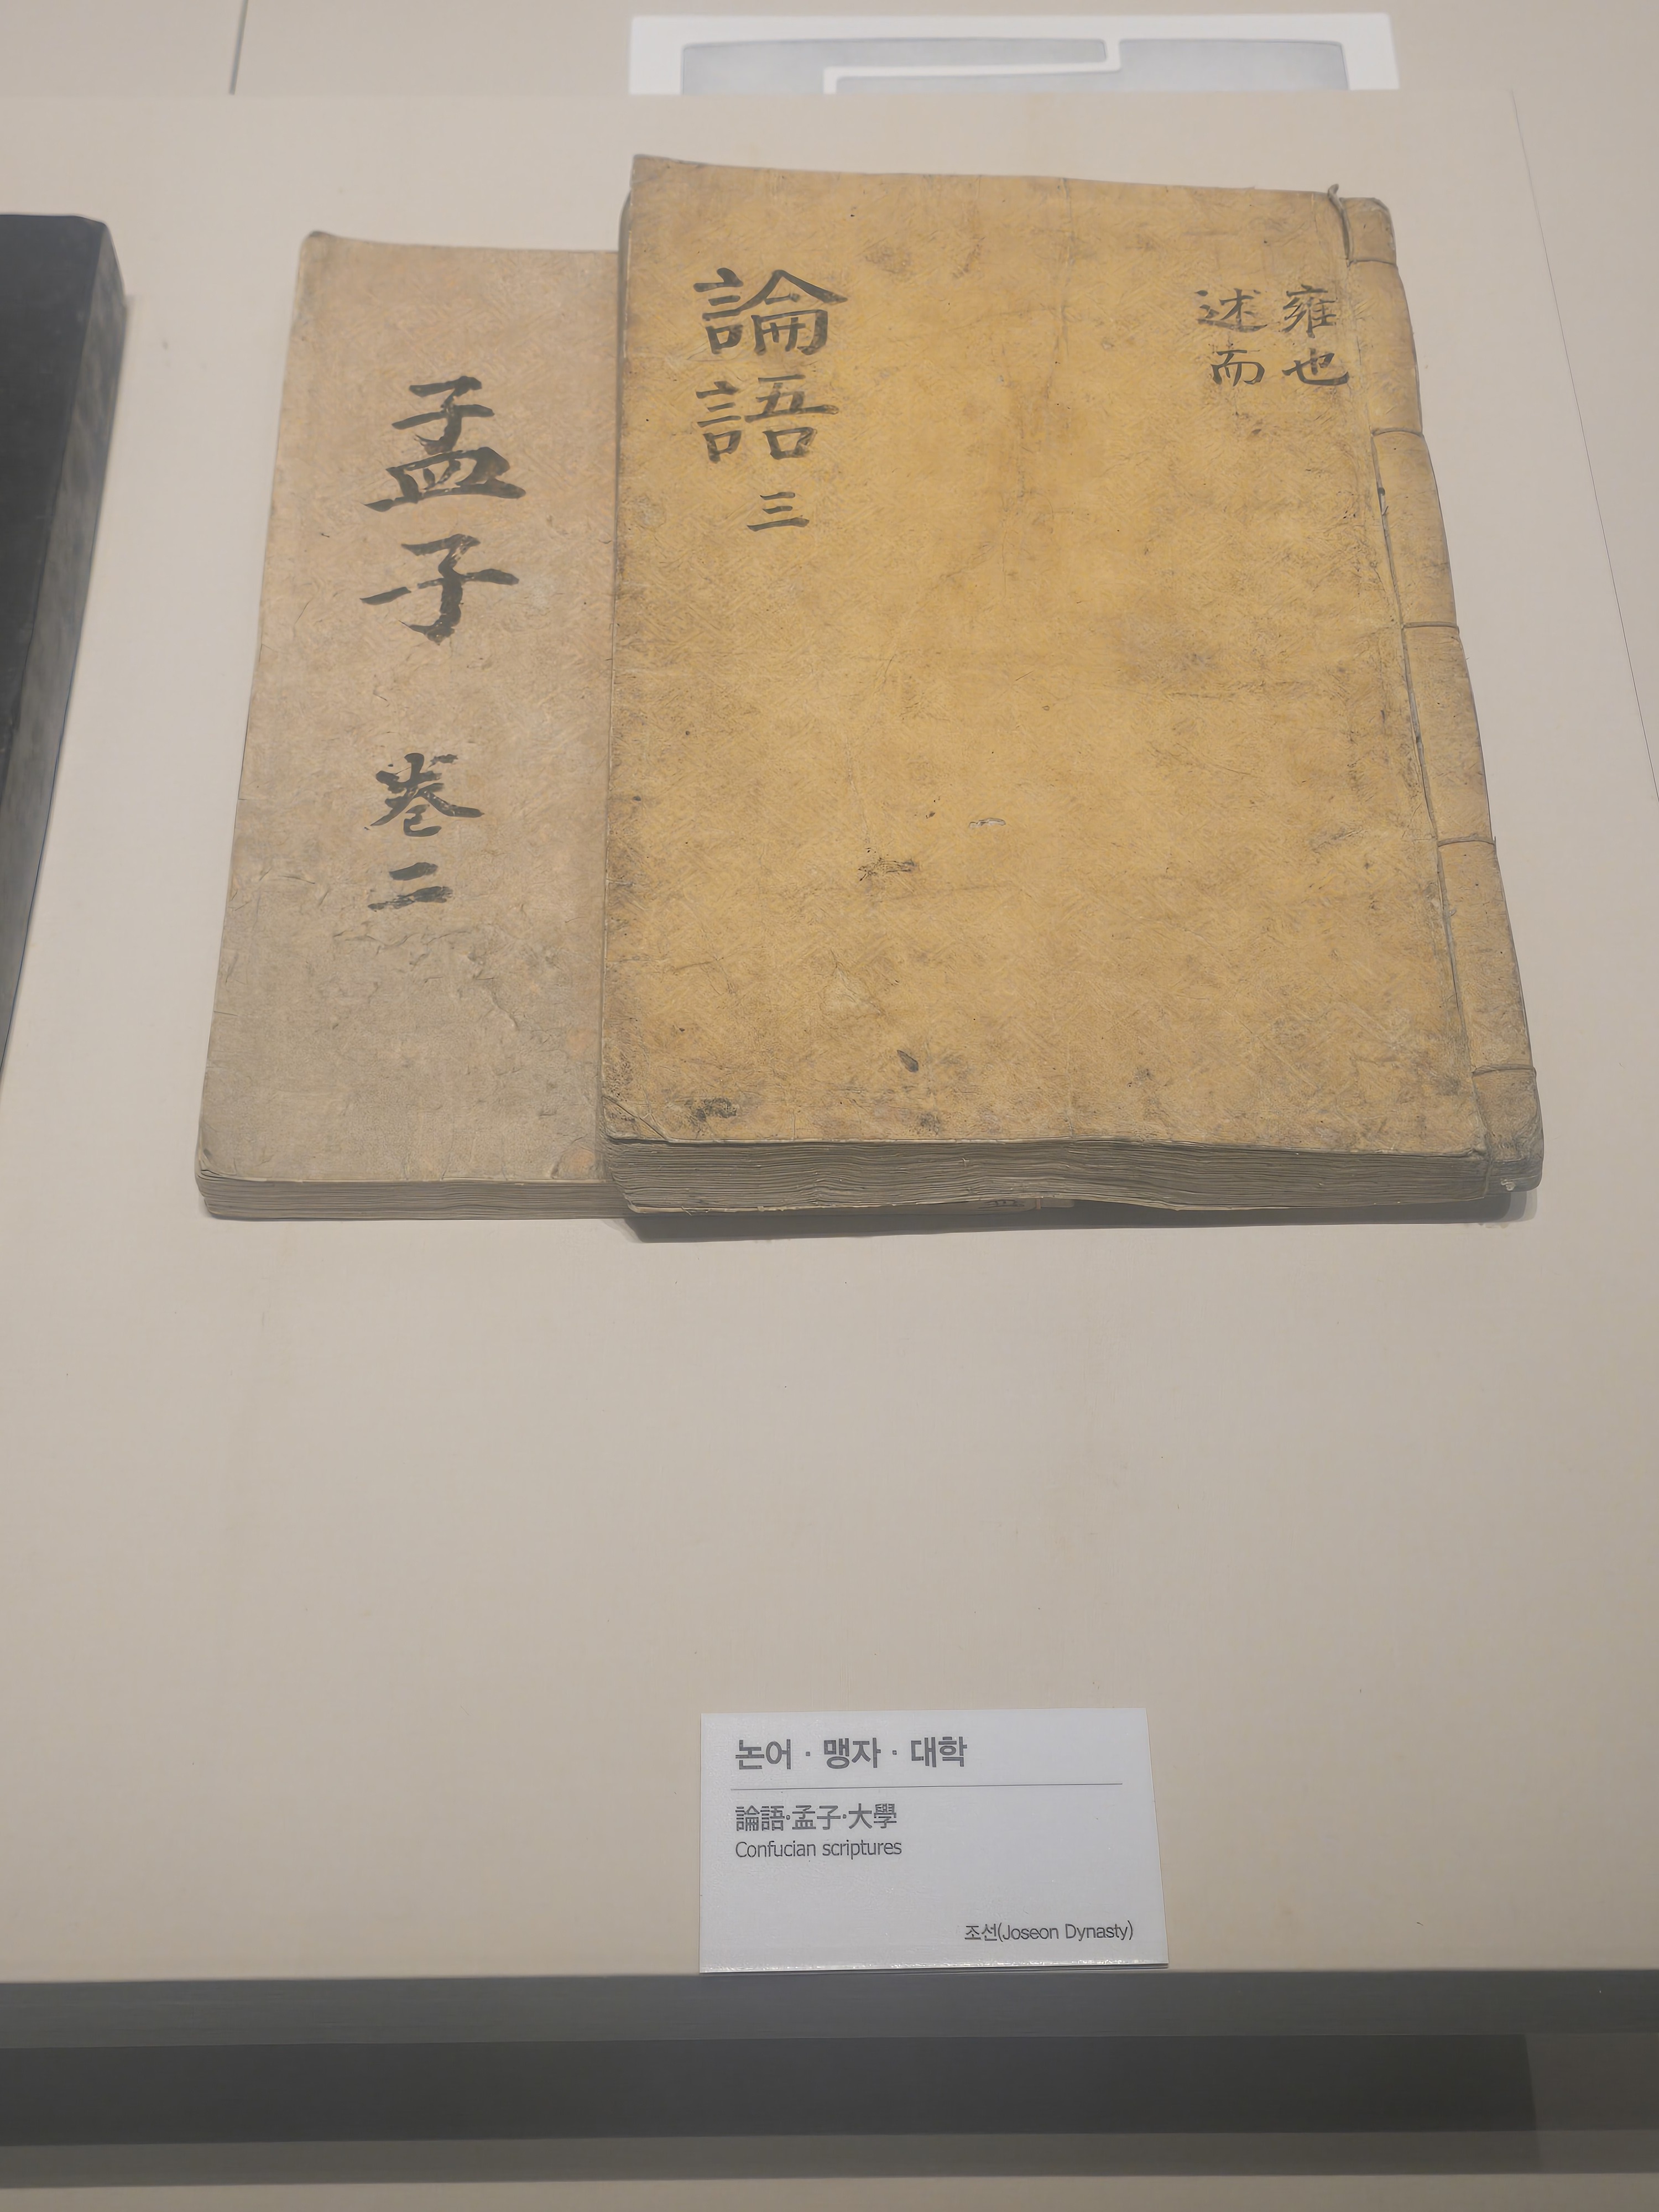 論語三
雍也
述而
孟子 卷二
논어 · 맹자 · 대학
論語·孟子·大學
Confucian scriptures
조선(Joseon Dynasty)